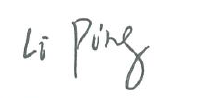 Li Ping